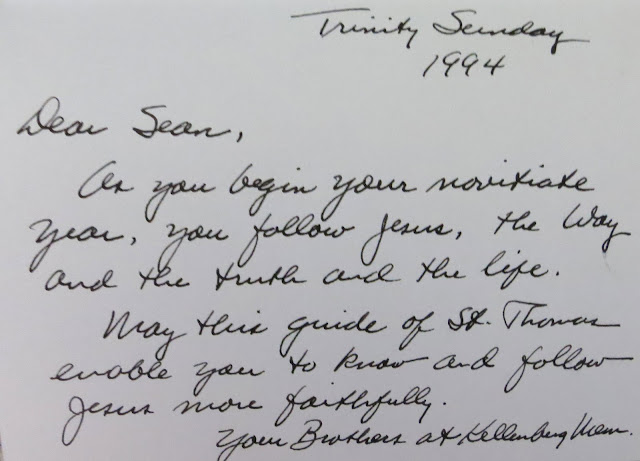 Trinity Sunday
1994
Dear Sean,
As you begin your novitiate
year, you follow Jesus, the Way
and the truth and the life.
May this guide of St. Thomas
enable you to know and follow
Jesus more faithfully.
Your Brothers at Kellenberg Mem.